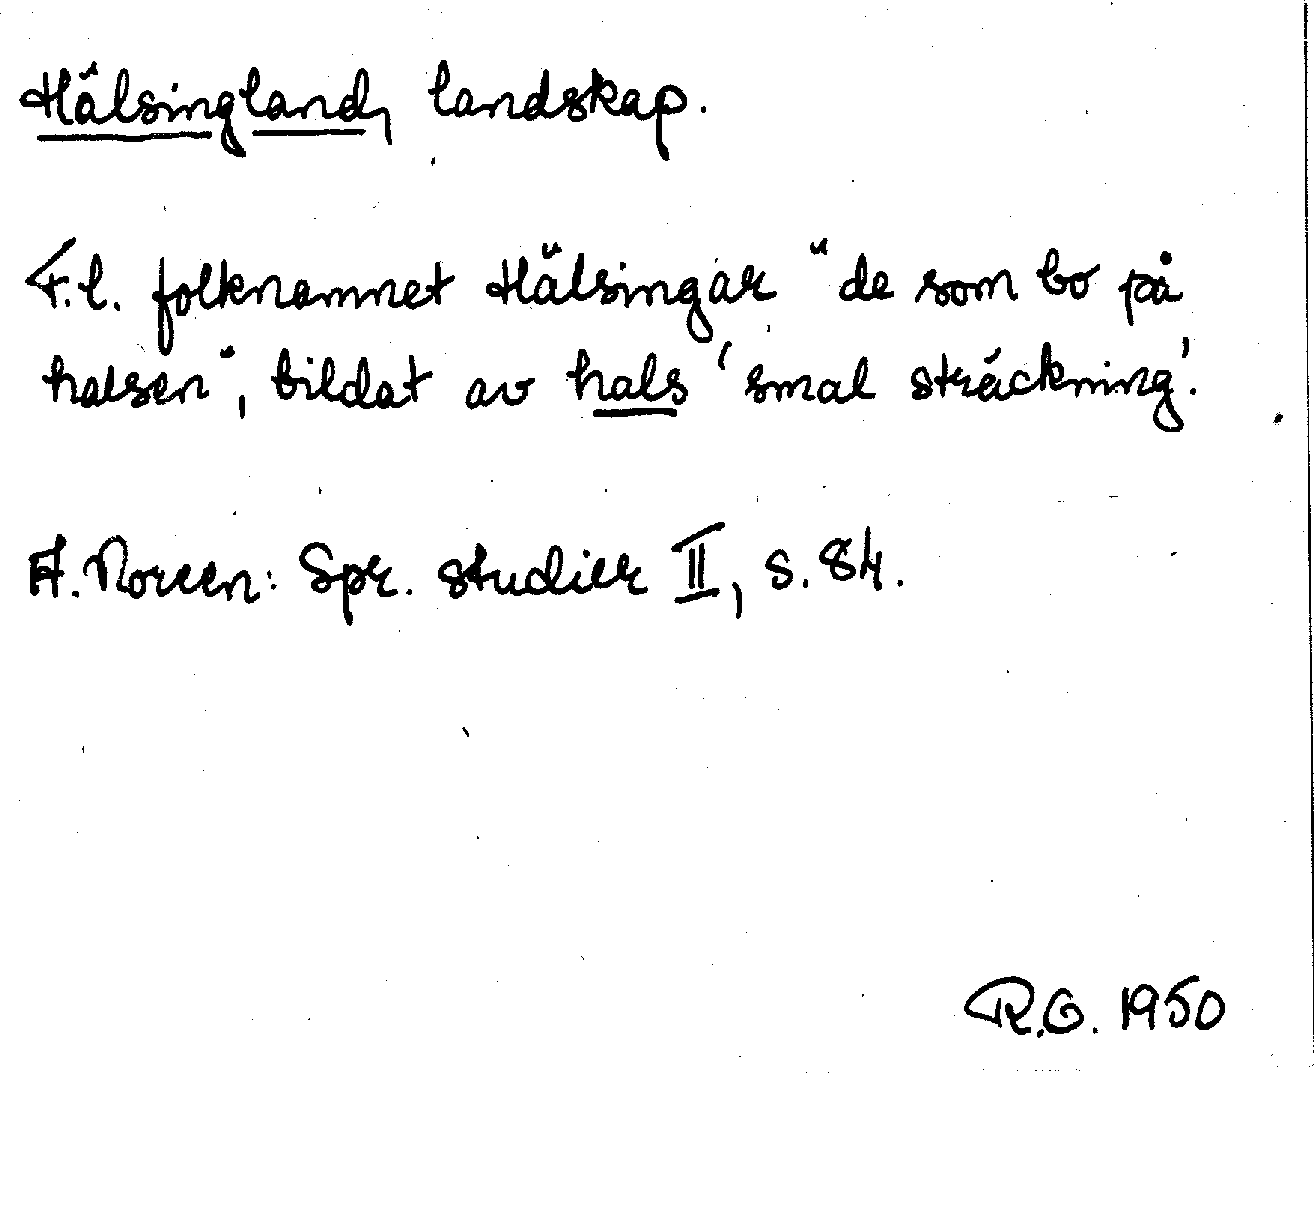 Hälsingland, landskap.
F.l. folknamnet Hälsingar "de som bo på
halsen", bildat av hals 'smal sträckning'.
A. Noreen: Spr. studier II, s. 84.
R.G. 1950